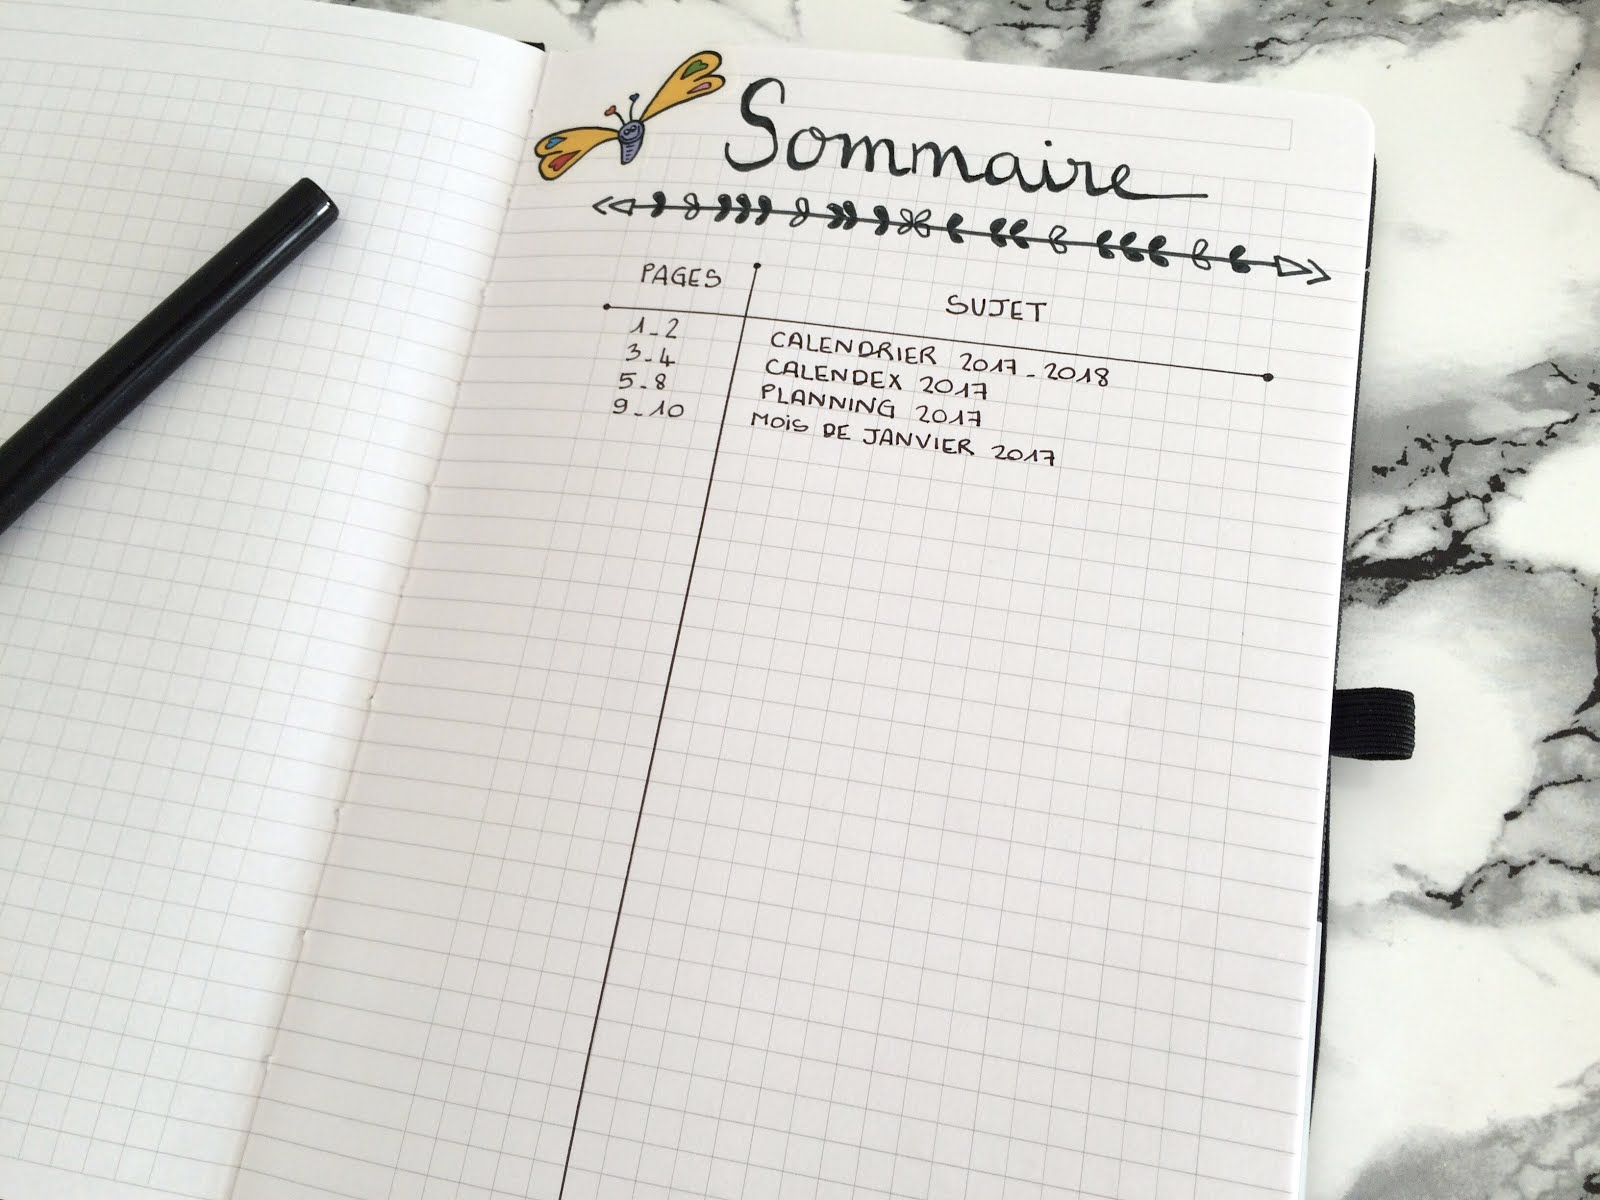 Sommaire
PAGES SUJET
1-2 CALENDRIER 2017-2018
3-4 CALENDEX 2017
5-8 PLANNING 2017
9-10 MOiS DE JANVIER 2017